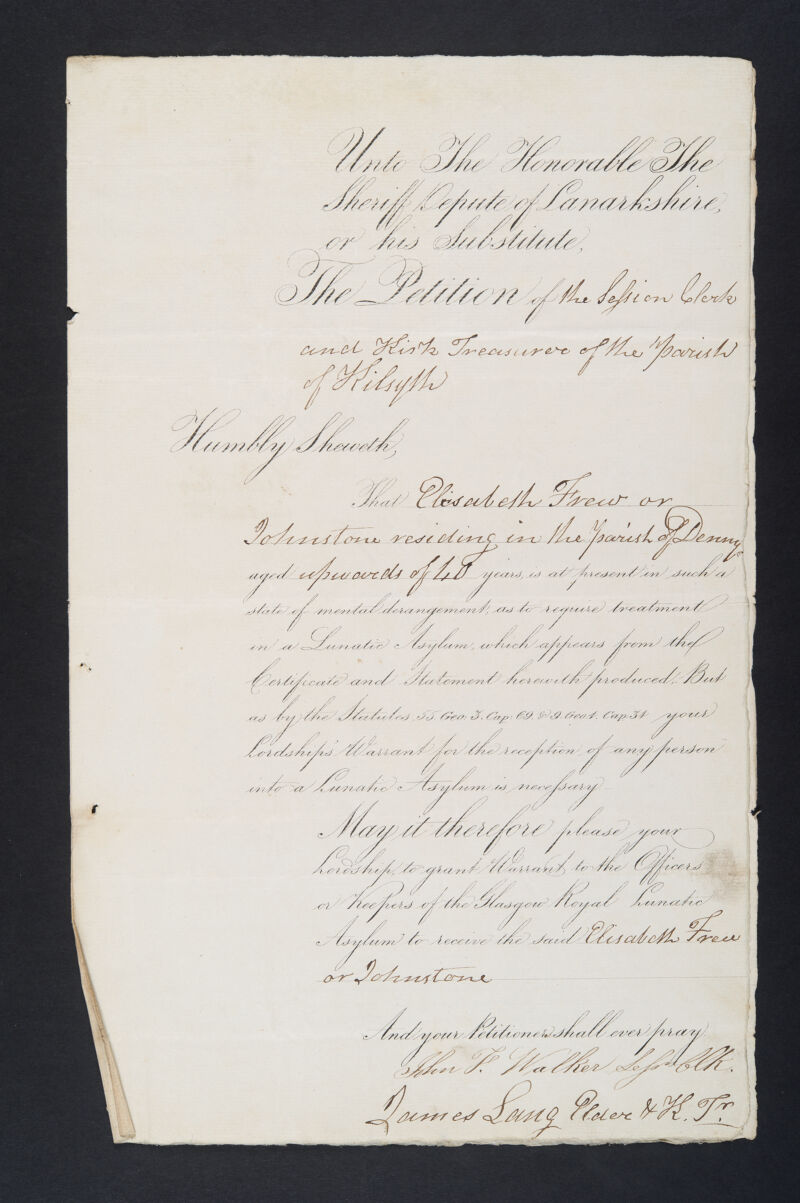 Unto The Honorable The
Sheriff Depute of Lanarkshire,
or his Substitute,
The Petition of the Session Clerk
and Kirk Treasurer of the Parish
of Kilsyth
Humbly Sheweth,
That Elisabeth Frew or
Johnstone residing in the Parish of Denny
aged upwards of 40 years, is at present in such a
state of mental derangement, as to require treatment
in a Lunatic Asylum, which appears from the
Certificate and Statement herewith produced. But
as by the Statutes, 55. Geo. 3. Cap. 69. & 9. Geo. 4. Cap. 34 your
Lordship's Warrant for the reception of any person
into a Lunatic Asylum is necessary
May it therefore please your
Lordship, to grant Warrant, to the Officers
or Keepers of the Glasgow Royal Lunatic
Asylum to receive the said Elisabeth Frew
or Johnstone
And your Petitioners shall ever pray
John F. Walker Sessn. Clk.
James Lang Elder & K. Tr.